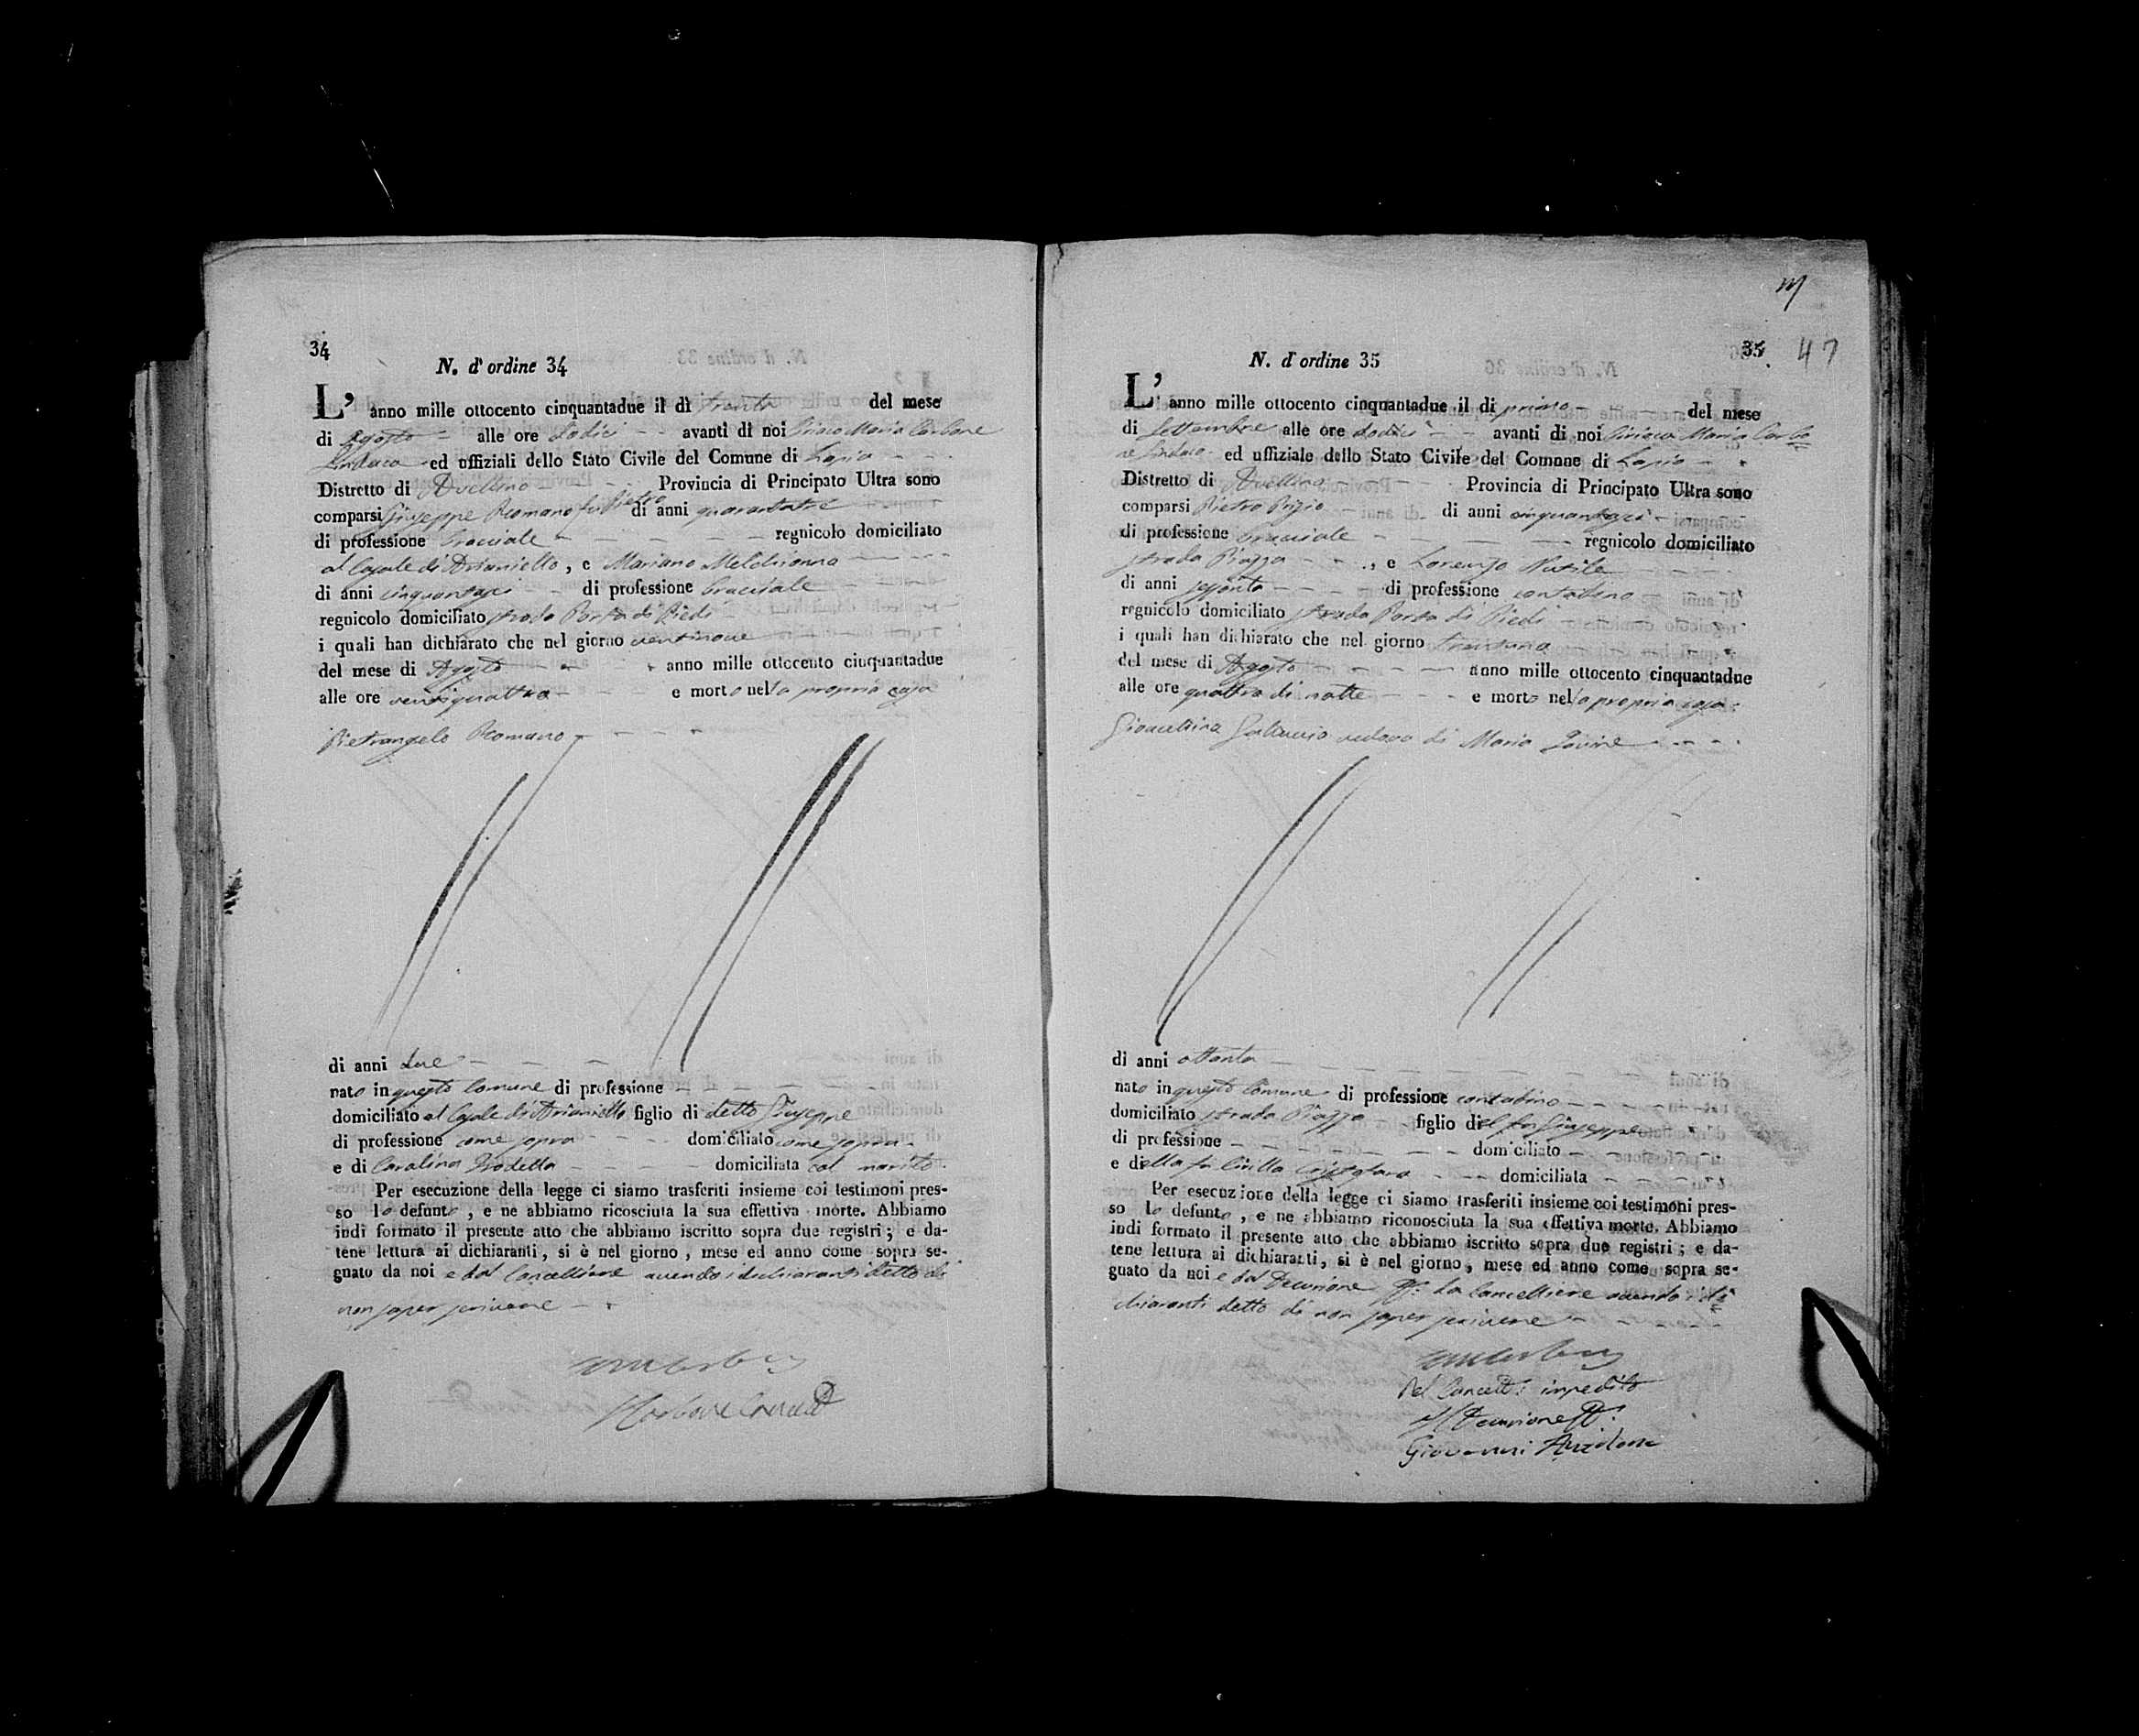 34
N. d'ordine 34
L' anno mille ottocento cinquantadue il dì trenta del mese
di Agosto alle ore dodici avanti di noi Ciriaco Maria Carbone
Sindaco ed uffiziali dello Stato Civile del Comune di Lapio
Distretto di Avellino Provincia di Principato Ultra sono
comparsi Giuseppe Romano fu Pietro di anni quarantatre
di professione bracciale regnicolo domiciliato
al Casale di Arianiello, e Mariano Melchionna
di anni cinquantasei di professione bracciale
regnicolo domiciliato strada Porta di Piedi
i quali han dichiarato che nel giorno ventinove
del mese di Agosto anno mille ottocento cinquantadue
alle ore ventiquattro e morto nella propria casa
Pietrangelo Romano
di anni due
nato in questo Comune di professione
domiciliato al Casale di Arianiello figlio di detto Giuseppe
di professione come sopra domiciliato come sopra
e di Carolina domiciliata col marito
Per esecuzione della legge ci siamo trasferiti insieme coi testimoni pres-
so lo defunto, e ne abbiamo ricosciuta la sua effettiva morte. Abbiamo
indi formato il presente atto che abbiamo iscritto sopra due registri; e da-
tene lettura ai dichiaranti, si è nel giorno, mese ed anno come sopra se-
gnato da noi e dal Cancelliere avendo i dichiaranti detto di
non saper scrivere
35 47
N. d'ordine 35
L' anno mille ottocento cinquantadue il di primo del mese
di Settembre alle ore dodici avanti di noi Ciriaco Maria Carbo
ne Sindaco ed uffiziale dello Stato Civile del Comune di Lapio
Distretto di Avellino Provincia di Principato Ultra sono
comparsi Pietro Prizio di anni cinquantasei
di professione bracciale regnicolo domiciliato
strada Piazza, e Lorenzo Nutile
di anni sessanta di professione contadino
regnicolo domiciliato strada Porta di Piedi
i quali han dichiarato che nel giorno trentuno
del mese di Agosto anno mille ottocento cinquantadue
alle ore quattro di notte e morto nella propria casa
vedovo di Maria Iovine
di anni ottanta
nato in questo Comune di professione contadino
domiciliato strada Piazza figlio del fu Giuseppe
di professione domiciliato
e della fu domiciliata
Per esecuzione della legge ci siamo trasferiti insieme coi testimoni pres-
so lo defunto, e ne abbiamo riconosciuta la sua effettiva morte. Abbiamo
indi formato il presente atto che abbiamo iscritto sopra due registri; e da-
tene lettura ai dichiaranti, si è nel giorno, mese ed anno come sopra se-
gnato da noi e dal Decurione ff. da Cancelliere avendo i di=
chiaranti detto di non saper scrivere
Pel Cancell: impedito
Il Decurione ff.
Giovanni